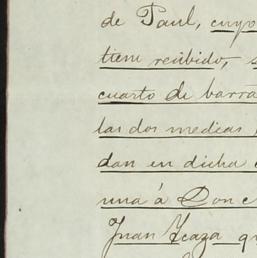 de Paul, cuyo
tiem recibido,
cuarto de barra
las dos medias
dan en dicha
una á Don
Juan Ycaza